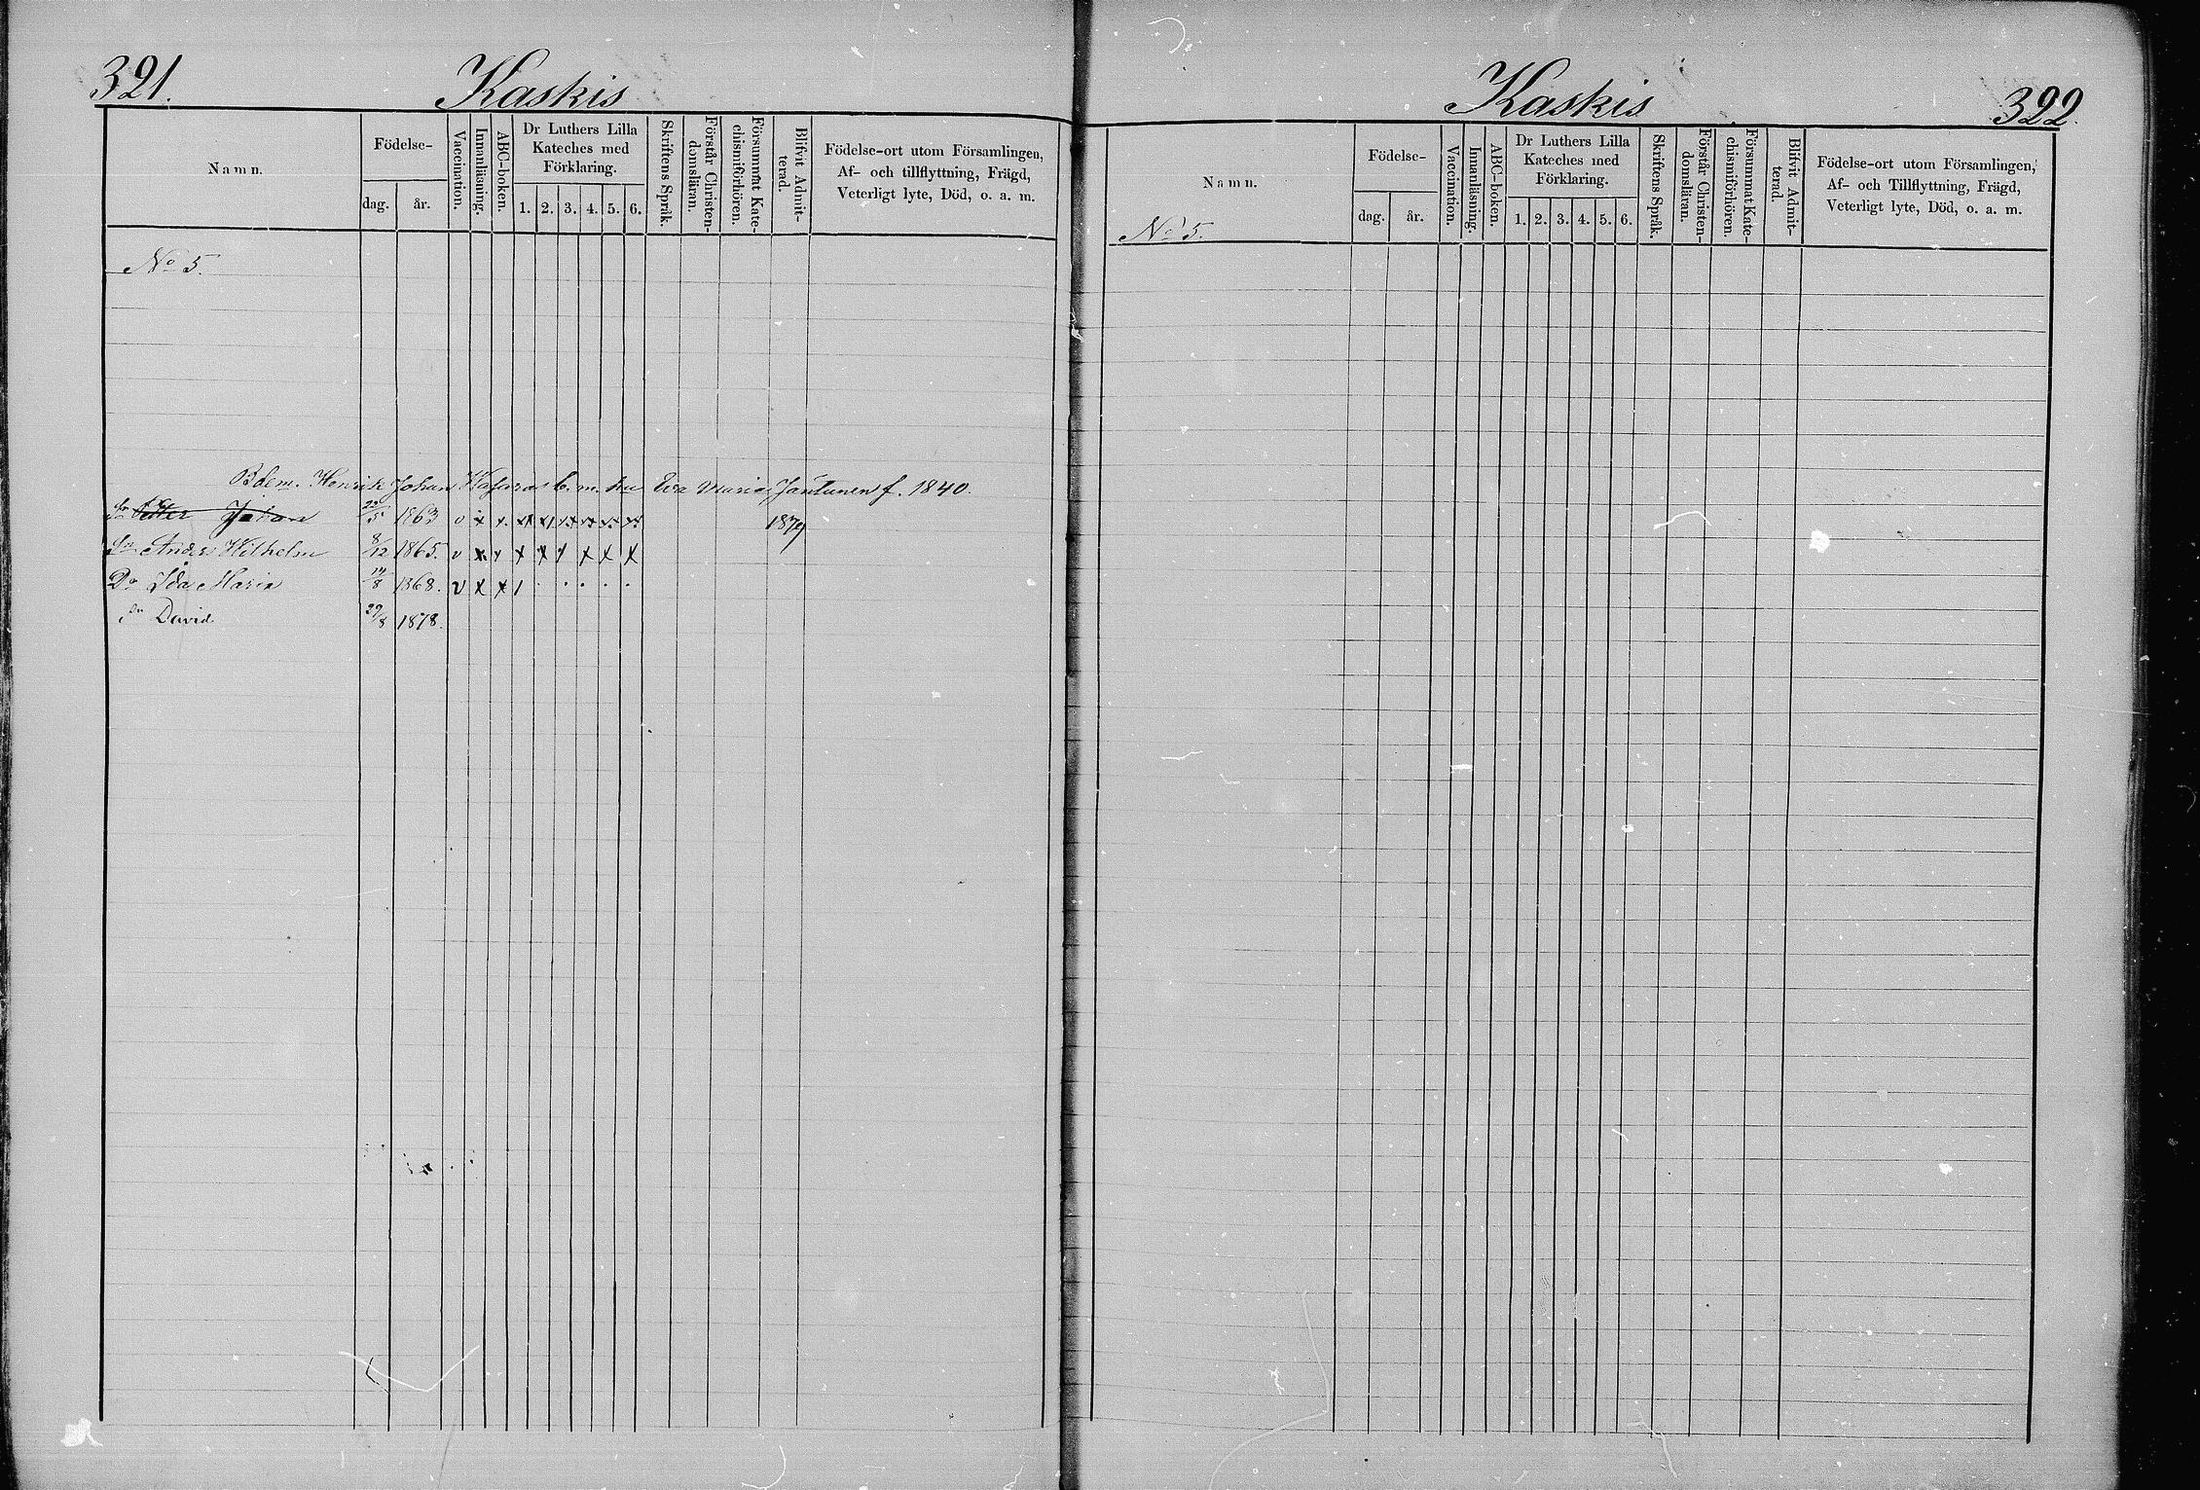 321.
Kaskis
Namn.
Födelse-
dag.
år.
Vaccination.
Innanläsning.
ABC-boken.
Dr Luthers Lilla
Kateches med
Förklaring.
1. 2. 3. 4. 5. 6.
Skriftens Språk.
Förstår Christen-
domsläran.
Försummat Kate-
chismiförhören.
Blifvit Admit-
terad.
Födelse-ort utom Församlingen,
Af- och tillflyttning, Frägd,
Veterligt lyte, Död, o. a. m.
No 5.
Bdem. Henrik Johan b. m. hu Eva Maria Jantunen f. 1840.
Sn Petter Johan 22/5 1863 v x x x x x x x x 1879
Sn Anders Wilhelm 8/12 1865. v x x x x x x x x
Dr Ida Maria 14/8 1868. v x x / . . . . .
Sn David 29/8 1878.
Kaskis
322.
Namn.
Födelse-
dag.
år.
Vaccination.
Innanläsning.
ABC-boken.
Dr Luthers Lilla
Kateches med
Förklaring.
1. 2. 3. 4. 5. 6.
Skriftens Språk.
Förstår Christen-
domsläran.
Försummat Kate-
chismiförhören.
Blifvit Admit-
terad.
Födelse-ort utom Församlingen,
Af- och Tillflyttning, Frägd,
Veterligt lyte, Död, o. a. m.
No 5.